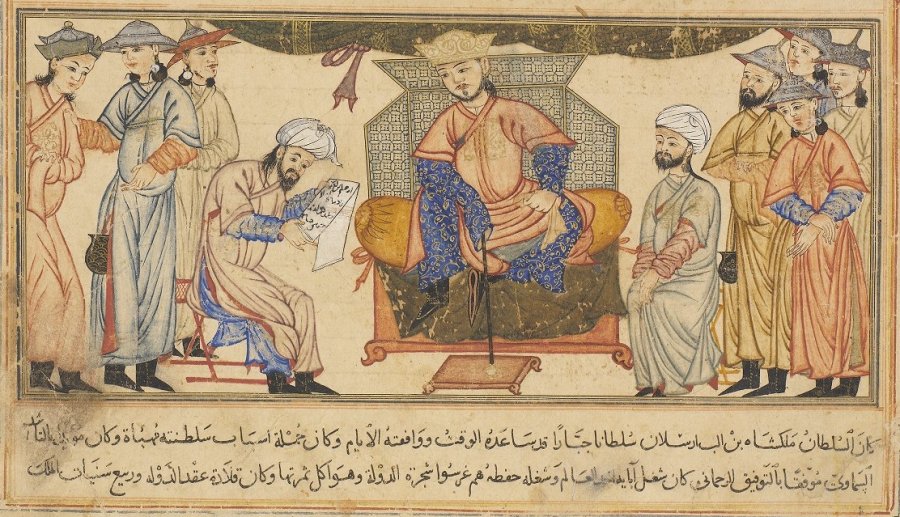 كان السلطان ملكشاه بن الب ارسلان سلطانا جبارا قد ساعده الوقت ووافقته الايام وكان جملة اسباب سلطنته مهيأة وكان
السماوى موفقا بالتوفيق الرحمانى كان شغل العالم وشغله حفظه هم غرسوا شجرة الدولة وهو اكل ثمرتها وكان قلادة عقد الدولة وربيع سنيات الملك